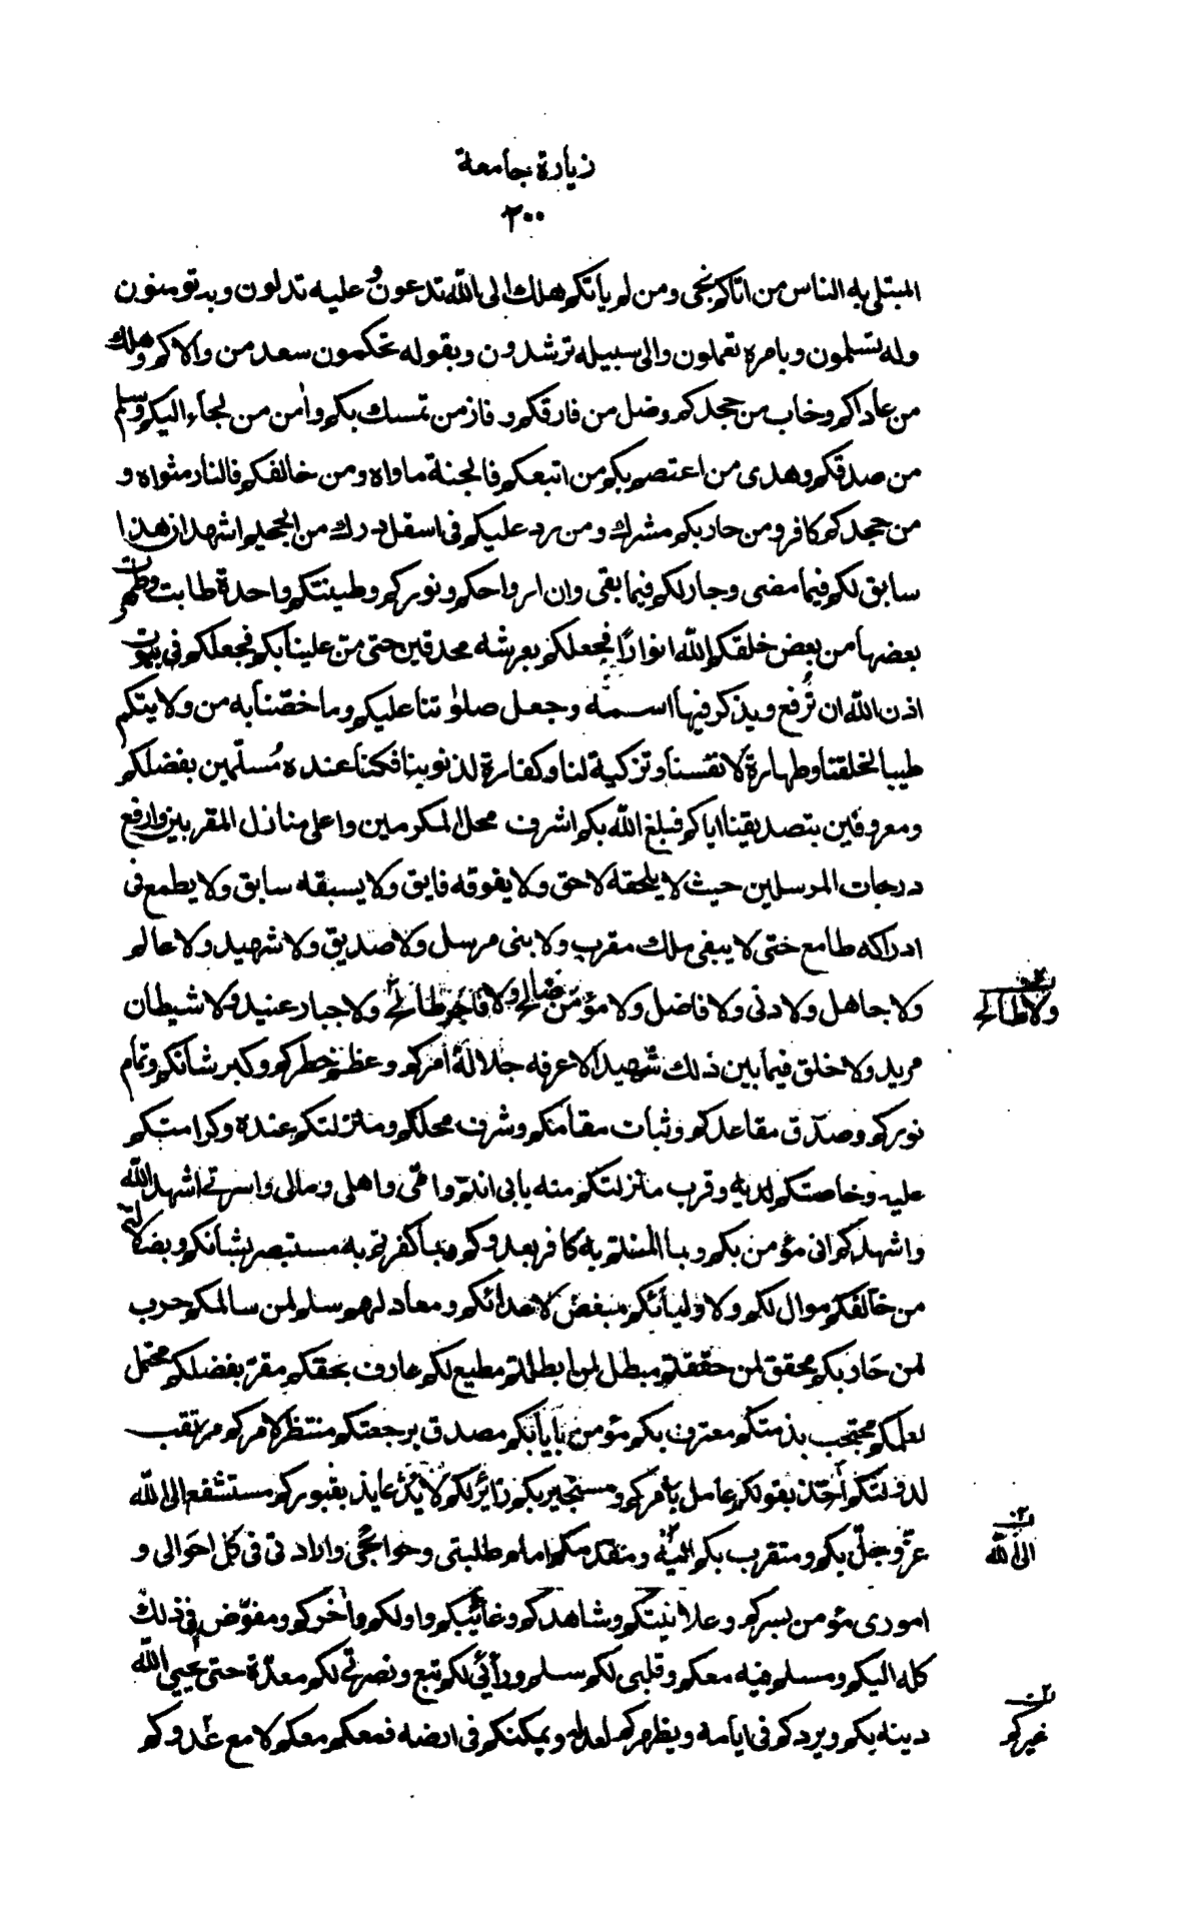 زيارة جامعة
٢٠٠
المبتلى به الناس من اتاكم نجى ومن لم ياتكم هلك الى الله تدعون و عليه تدلون وبه تومنون
وله تسلمون وبامره تعملون والى سبيله ترشدون وبقوله تحكمون سعد من والاكم وهلك
من عاداكم وخاب من جحدكم وضل من فارقكم وفاز من تمسك بكم وامن من لجأء اليكم وسلم
من صدقكم وهدى من اعتصم بكم من اتبعكم فالجنة ماواه ومن خالفكم فالنار مثواه و
من جحدكم كافر ومن حاربكم مشرك ومن رد عليكم فى اسفل درك من الجحيم اشهد ان هذا
سابق لكم فيما مضى وجار لكم فيما بقى وان ارواحكم ونوركم وطينتكم واحدة طابت وطهرت
بعضها من بعض خلقكم الله انوارًا فجعلكم بعرشه محدقين حتى منّ علينا بكم فجعلكم فى بيوت
اذن الله ان تُرفع ويذكر فيها اسمه وجعل صلوٰتنا عليكم وما خصّنا به من ولايتكم
طيبا لخلقنا وطهارة لانفسنا وتزكية لنا وكفارة لذنوبنا فكنا عنده مُسلّمين بفضلكم
ومعروفين بتصديقنا اياكم فبلغ الله بكم اشرف محل المكرمين واعلى منازل المقربين وارفع
درجات المرسلين حيث لا يلحقه لاحق ولا يفوقه فايق ولا يسبقه سابق ولا يطمع فى
ادراكه طامع حتى لا يبقى ملك مقرب ولا نبى مرسل ولا صديق ولا شهيد ولا عالم
ولا جاهل ولا دنى ولا فاضل ولا مؤمن صالح ولا فاجر طالح ولا جبار عنيد ولا شيطان
ولا طالح
مريد ولا خلق فيما بين ذلك شهيد الا عرفه جلالة امركم وعظم خطركم وكبر شانكم وتمام
نوركم وصدق مقاعدكم وثبات مقامكم وشرف محلكم ومنزلتكم عنده وكرامتكم
عليه وخاصتكم لديه وقرب منزلتكم منه بابى انتم وامّى واهلى ومالى واسرتى اشهد الله
واشهدكم انى مؤمن بكم وبما امنتم به كافر بعدوكم وبما كفرتم به مستبصر بشانكم وبضلالة
من خالفكم موال لكم ولاوليائكم مبغض لاعدائكم ومعاد لهم سلم لمن سالمكم حرب
لمن حاربكم محقق لمن حققتم مبطل لمن ابطلتم مطيع لكم عارف بحقكم مقرّ بفضلكم محتمل
لعلمكم محتجب بذمتكم معترف بكم مؤمن بايابكم مصدق برجعتكم منتظر لامركم مرتقب
لدولتكم آخذ بقولكم عامل بامركم و مستجير بكم زائر لكم لائذ عايذ بقبوركم مستشفع الى الله
عزّ وجلّ بكم ومتقرب بكم اليه ومقدمكم امام طلبتى وحوائجى وارادتى فى كل احوالى و
الى الله
امورى مؤمن بسركم وعلانيتكم وشاهدكم وغائبكم واولكم واخركم ومفوّض فى ذلك
كله اليكم ومسلم فيه معكم وقلبى لكم سلم ورأئى لكم تبع ونصرتى لكم معدّة حتى يحيى الله
دينه بكم ويردكم فى ايامه ويظهركم لعدله ويمكنكم فى ارضه فمعكم معكم لا مع عدوكم
غيركم